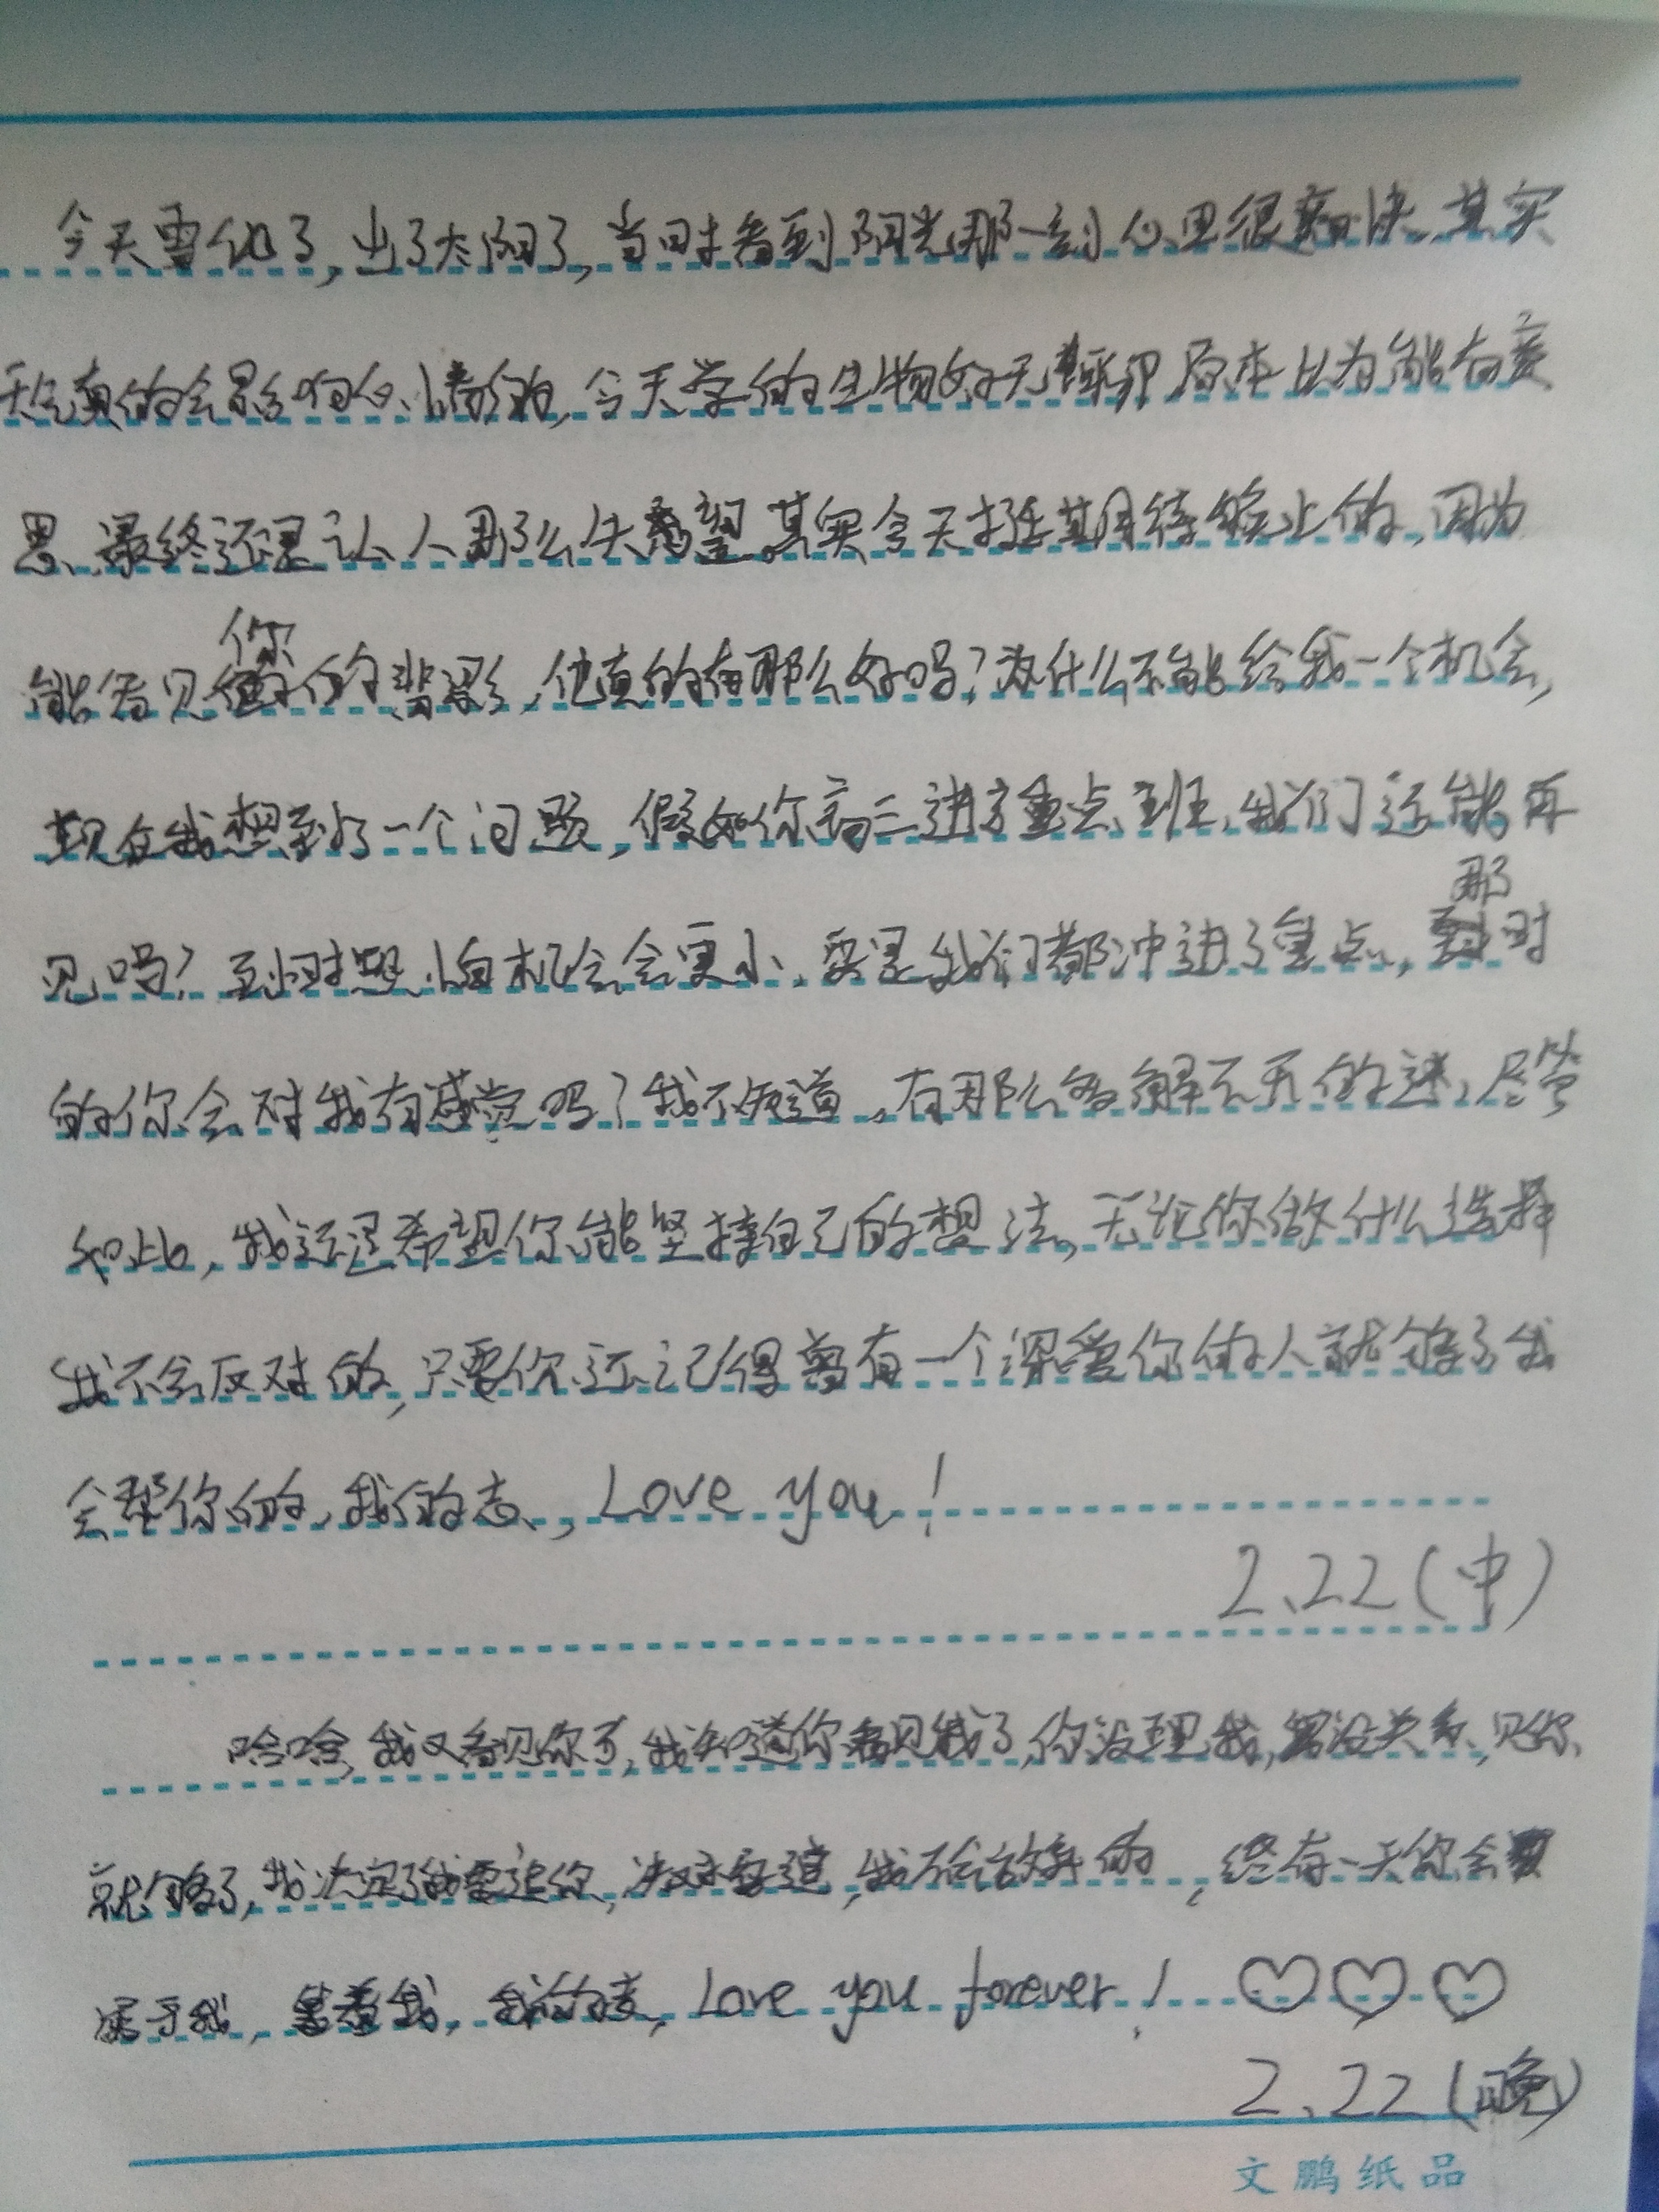 今天雪化了,出了太阳了,当时看到阳光那一刻心里很爽快.其实
天气真的会影响心情的,今天学的生物好无聊,原本以为能有意
思、最终还是让人那么失望.其实今天挺期待晚上的,因为
能看见你的背影,他真的有那么好吗?为什么不能给我一个机会,
现在我想到了一个问题,假如你高三进了重点班,我们还能再
见吗?到时恐怕机会会更小,要是我们都冲进了重点,那时
的你会对我有感觉吗?我不知道,有那么多解不开的迷,尽管
如此,我还是希望你能坚持自己的想法,无论你做什么选择
我不会反对的,只要你还记得曾有一个深爱你的人就够了我
会帮你的,我的志,Love you!
2.22(中)
哈哈,我又看见你了,我知道你看见我了,你没理我,没关系,见你
就够了,我决定了我要追你,我不会放弃的,终有一天你会
属于我,等着我,我的志,Love you forever!♡♡♡
2.22(晚)
文鹏纸品